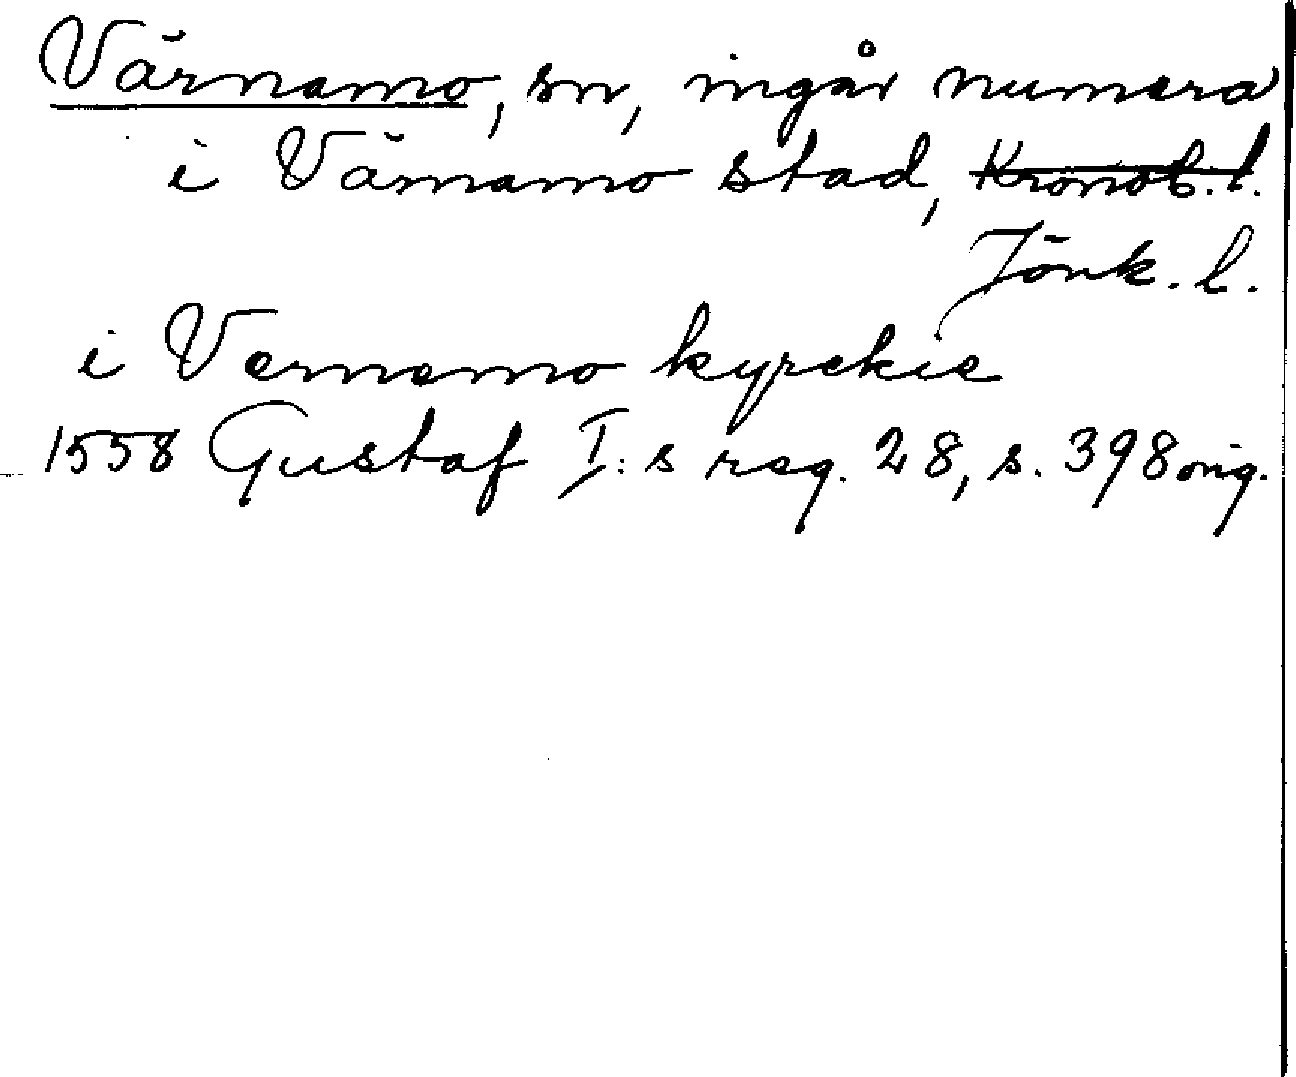 Värnamo, sn, ingår numera
i Värnamo stad, Kronob. l.
Jönk. l.
i Vernemo kyrckie
1558 Gustaf I:s reg. 28, s. 398 orig.